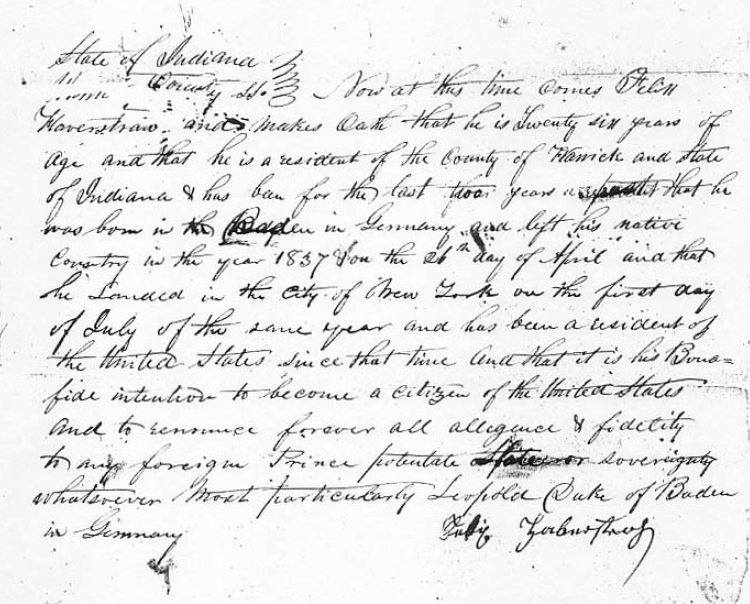 State of Indiana
County ss. Now at this time comes Felix
Haverstraw and makes Oath that he is Twenty six years of
age and that he is a resident of the County of Warrick and State
of Indiana & has been for the last four years that he
was born in Baden in Germany and left his native
Country in the year 1837 & on the 26th day of April and that
he Landed in the City of New York on the first day
of July of the same year and has been a resident of
the United States since that time And that it is his Bona=
fide intention to become a citizen of the United States
and to renounce forever all allegence & fidelity
to any foreign Prince potentate State or sovereignty
whatsoever Most particularly Leopold Duke of Baden
in Germany Felix